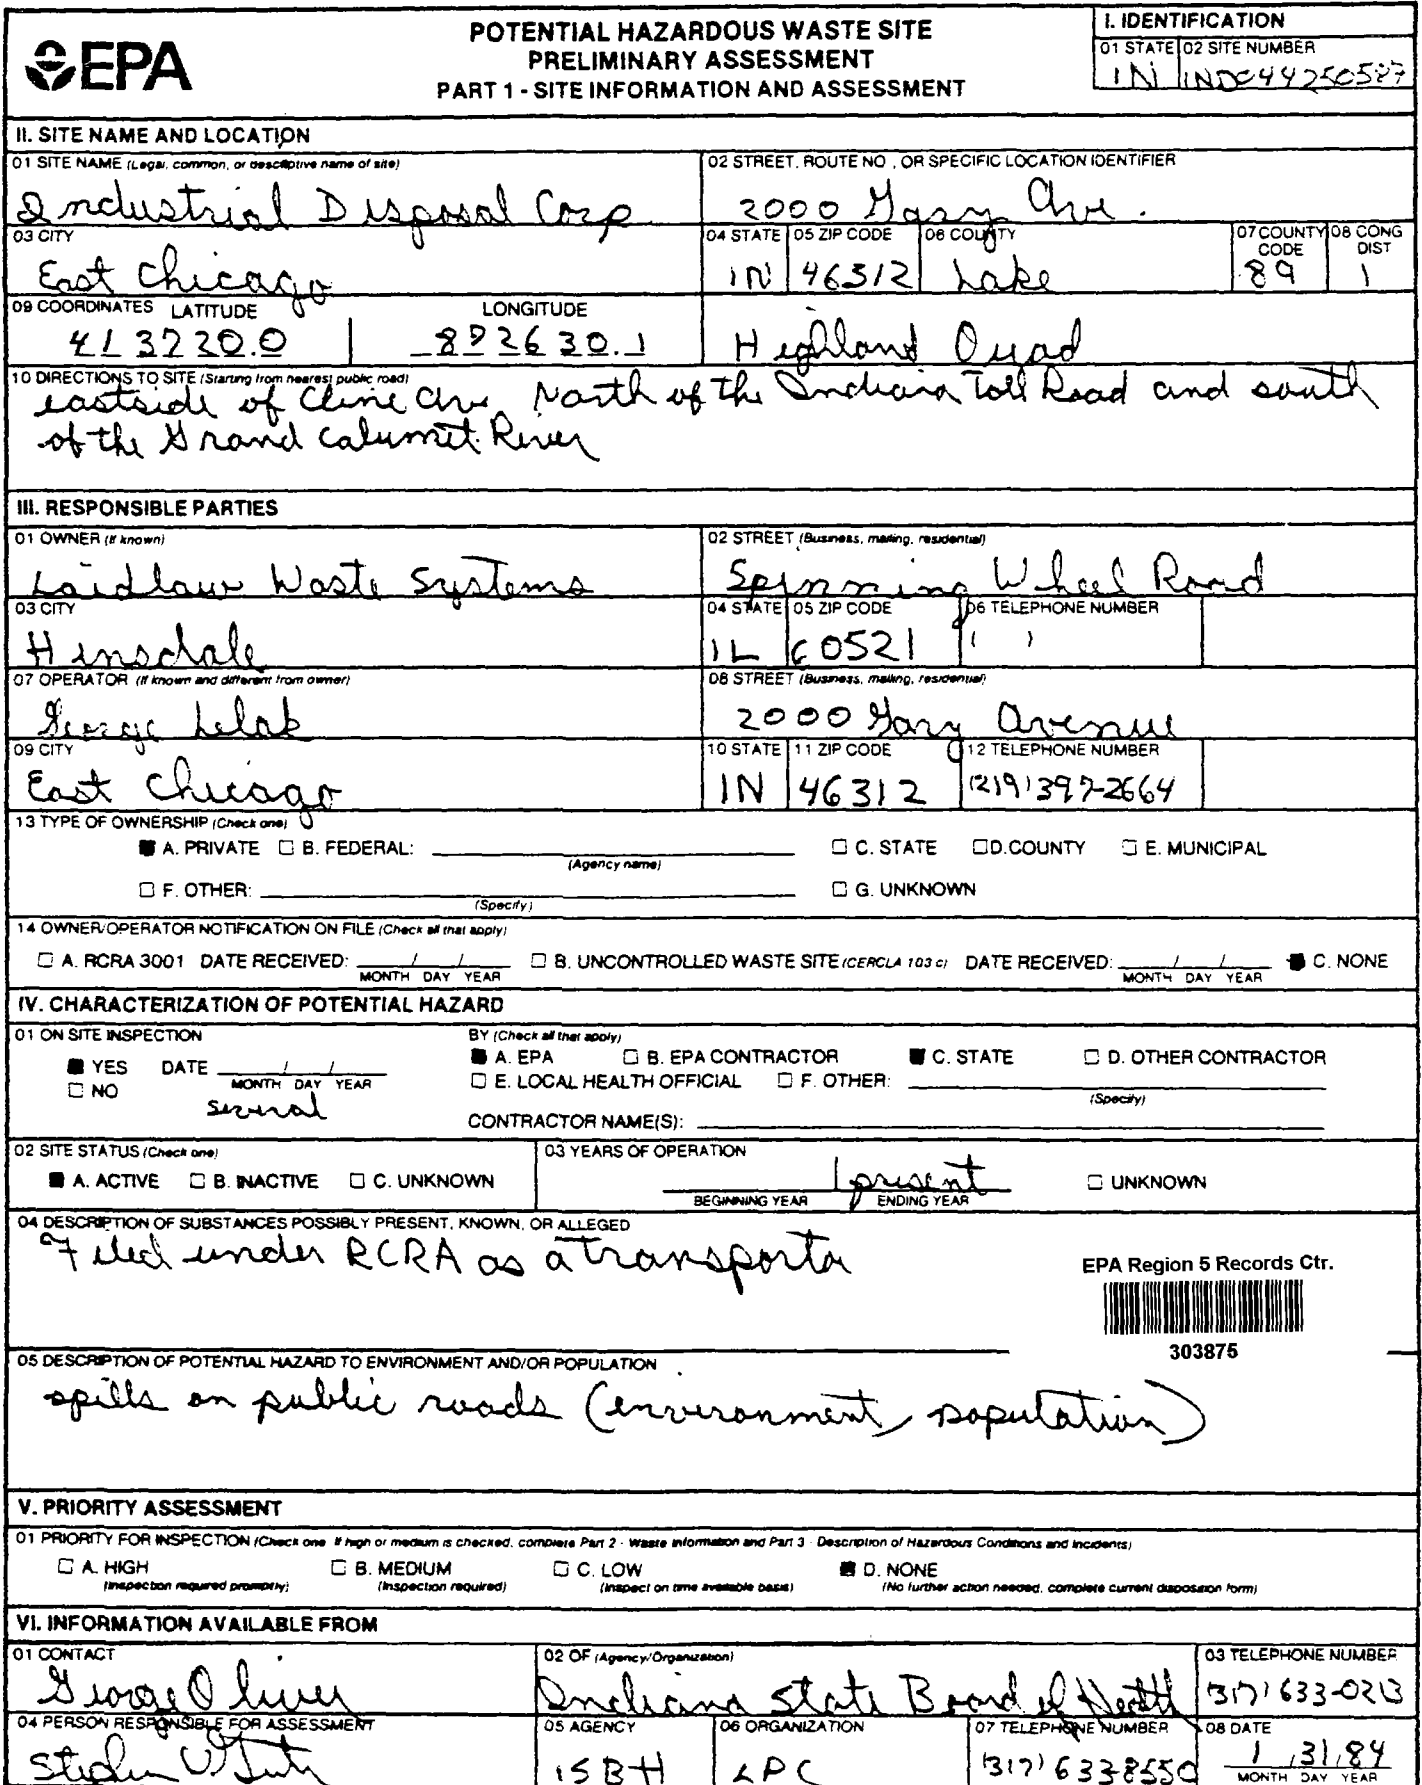 EPA
POTENTIAL HAZARDOUS WASTE SITE
PRELIMINARY ASSESSMENT
PART 1 - SITE INFORMATION AND ASSESSMENT
I. IDENTIFICATION
01 STATE 02 SITE NUMBER
IN IND044250587
II. SITE NAME AND LOCATION
01 SITE NAME (Legal, common, or descriptive name of site)
Industrial Disposal Corp
02 STREET, ROUTE NO., OR SPECIFIC LOCATION IDENTIFIER
2000 Gary Ave.
03 CITY
East Chicago
04 STATE 05 ZIP CODE 06 COUNTY 07 COUNTY CODE 08 CONG DIST
IN 46312 Lake 89 1
09 COORDINATES LATITUDE LONGITUDE
41 37 20.0 87 26 30.1
Highland Quad
10 DIRECTIONS TO SITE (Starting from nearest public road)
eastside of Cline Ave North of the Indiana Toll Road and south
of the Grand Calumet River
III. RESPONSIBLE PARTIES
01 OWNER (If known)
Laidlaw Waste Systems
02 STREET (Business, mailing, residential)
Spinning Wheel Road
03 CITY
Hinsdale
04 STATE 05 ZIP CODE 06 TELEPHONE NUMBER
IL 60521 ( )
07 OPERATOR (If known and different from owner)
George
08 STREET (Business, mailing, residential)
2000 Gary Avenue
09 CITY
East Chicago
10 STATE 11 ZIP CODE 12 TELEPHONE NUMBER
IN 46312 (219) 397-2664
13 TYPE OF OWNERSHIP (Check one)
A. PRIVATE B. FEDERAL: (Agency name) C. STATE D. COUNTY E. MUNICIPAL
F. OTHER: (Specify) G. UNKNOWN
14 OWNER/OPERATOR NOTIFICATION ON FILE (Check all that apply)
A. RCRA 3001 DATE RECEIVED: / / B. UNCONTROLLED WASTE SITE (CERCLA 103 c) DATE RECEIVED: / / C. NONE
MONTH DAY YEAR MONTH DAY YEAR
IV. CHARACTERIZATION OF POTENTIAL HAZARD
01 ON SITE INSPECTION
YES DATE / /
NO MONTH DAY YEAR
several
BY (Check all that apply)
A. EPA B. EPA CONTRACTOR C. STATE D. OTHER CONTRACTOR
E. LOCAL HEALTH OFFICIAL F. OTHER:
(Specify)
CONTRACTOR NAME(S):
02 SITE STATUS (Check one)
A. ACTIVE B. INACTIVE C. UNKNOWN
03 YEARS OF OPERATION
present UNKNOWN
BEGINNING YEAR ENDING YEAR
04 DESCRIPTION OF SUBSTANCES POSSIBLY PRESENT, KNOWN, OR ALLEGED
Filed under RCRA as a transporter
EPA Region 5 Records Ctr.
303875
05 DESCRIPTION OF POTENTIAL HAZARD TO ENVIRONMENT AND/OR POPULATION
spills on public roads (environment, population)
V. PRIORITY ASSESSMENT
01 PRIORITY FOR INSPECTION (Check one. If high or medium is checked, complete Part 2 - Waste Information and Part 3 - Description of Hazardous Conditions and Incidents)
A. HIGH B. MEDIUM C. LOW D. NONE
(Inspection required promptly) (Inspection required) (Inspect on time available basis) (No further action needed, complete current disposition form)
VI. INFORMATION AVAILABLE FROM
01 CONTACT
George Oliver
02 OF (Agency/Organization)
Indiana State Board of Health
03 TELEPHONE NUMBER
(317) 633-0213
04 PERSON RESPONSIBLE FOR ASSESSMENT
05 AGENCY
ISBH
06 ORGANIZATION
LPC
07 TELEPHONE NUMBER
(317) 633-8550
08 DATE
1 / 31 / 84
MONTH DAY YEAR